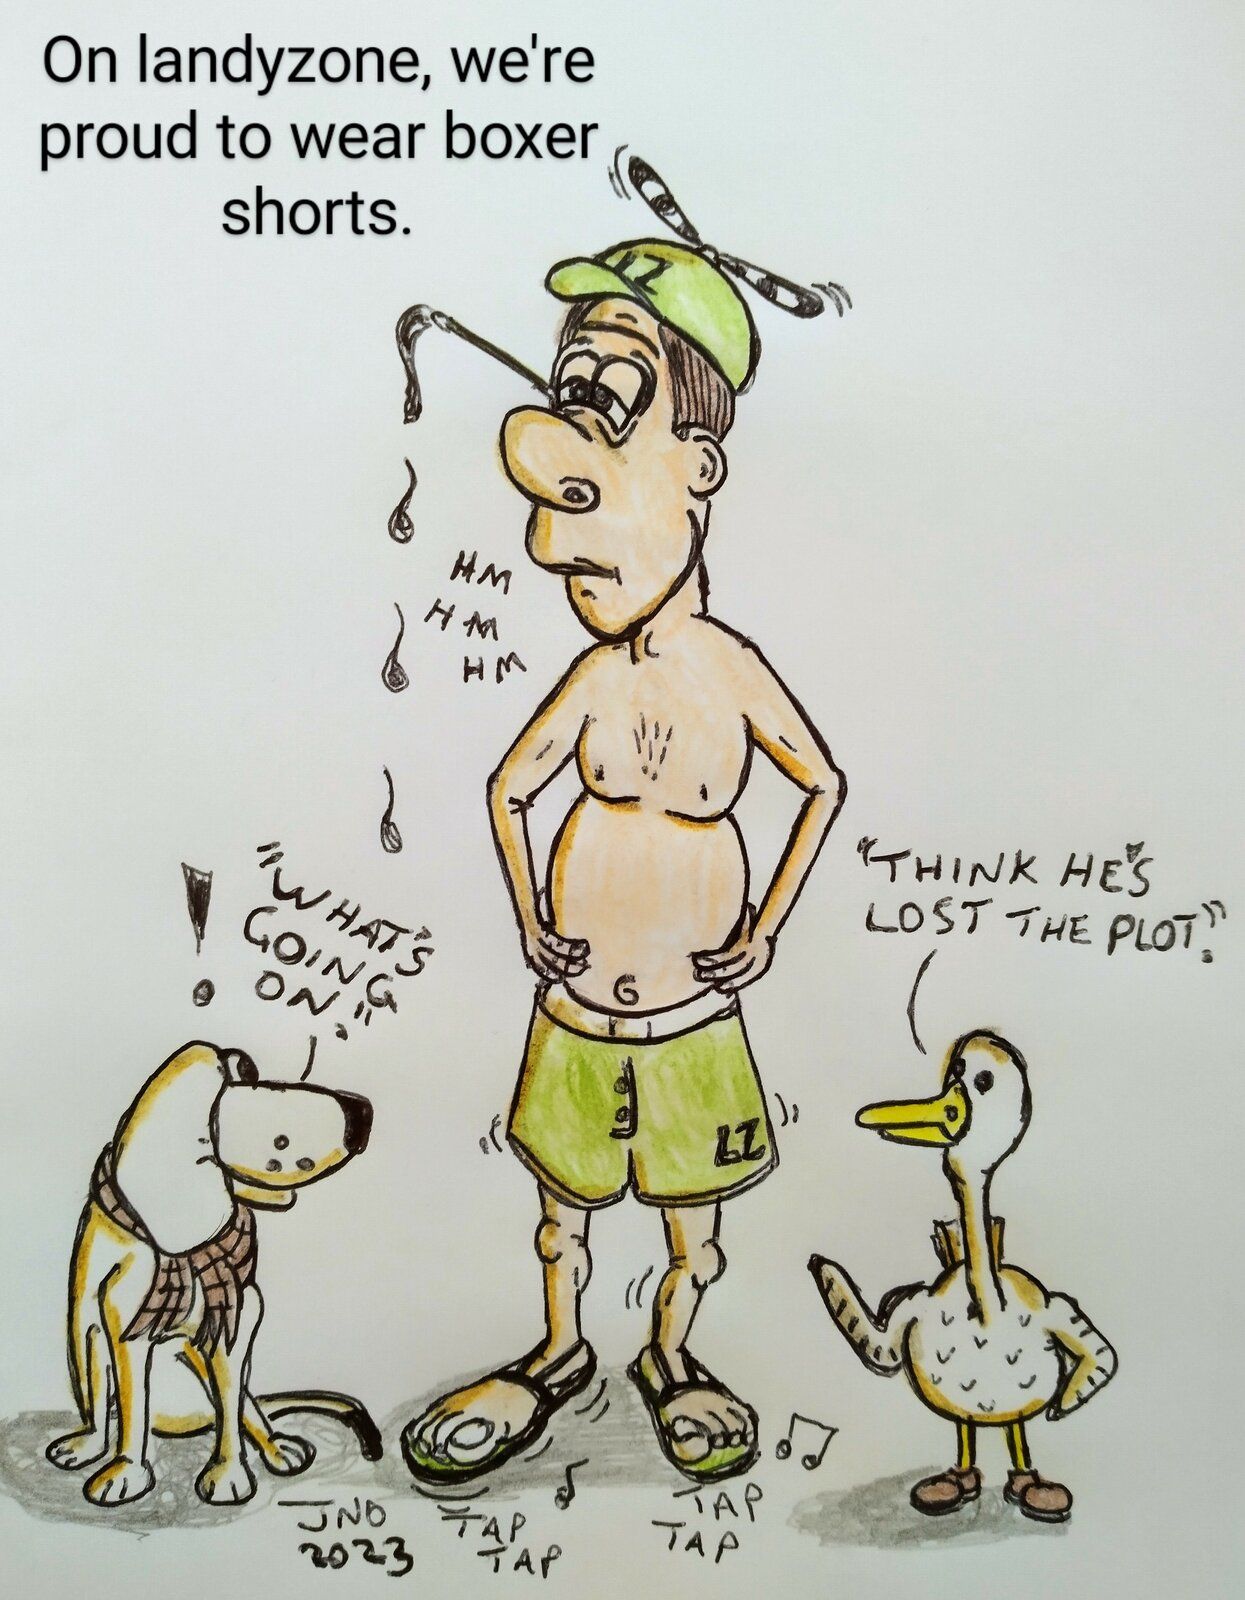 On landyzone, we're
proud to wear boxer
shorts.
LZ
HM
HM
HM
"WHAT'S
GOING
ON."
"THINK HE'S
LOST THE PLOT."
G
LZ
JNO
2023
TAP
TAP
TAP
TAP